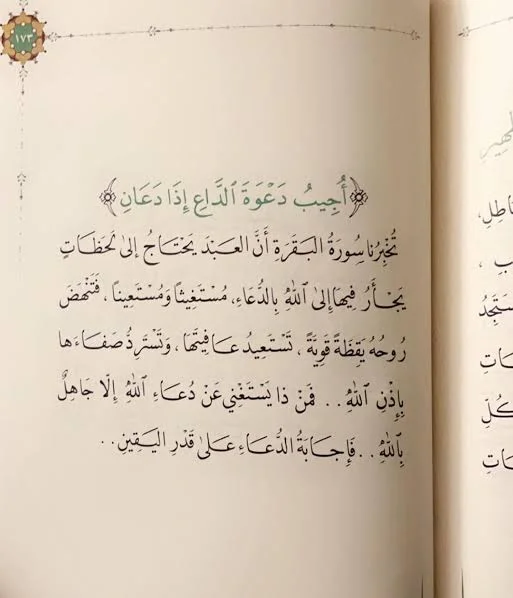 ١٧٣
﴿أُجِيبُ دَعْوَةَ ٱلدَّاعِ إِذَا دَعَانِ﴾
تُخْبِرُنا سُورَةُ البَقَرَةِ أَنَّ العَبْدَ يَحْتَاجُ إلىٰ لَحَظَاتٍ
يَجْأَرُ فِيهَا إِلىٰ اللهِ بِالدُّعَاءِ، مُسْتَغِيثًا وَمُسْتَعِينًا، فَتَنْهَضَ
رُوحُهُ يَقِظَةً قَوِيَّةً، تَسْتَعِيدُ عَافِيَتَهَا، وَتَسْتَرِدُّ صَفَاءَها
بِإِذْنِ اللهِ.. فَمَنْ ذا يَسْتَغْنِي عَنْ دُعَاءِ اللهِ إِلّا جَاهِلٌ
بِاللهِ.. فَإِجَابَةُ الدُّعَاءِ عَلىٰ قَدْرِ اليَقِينِ..